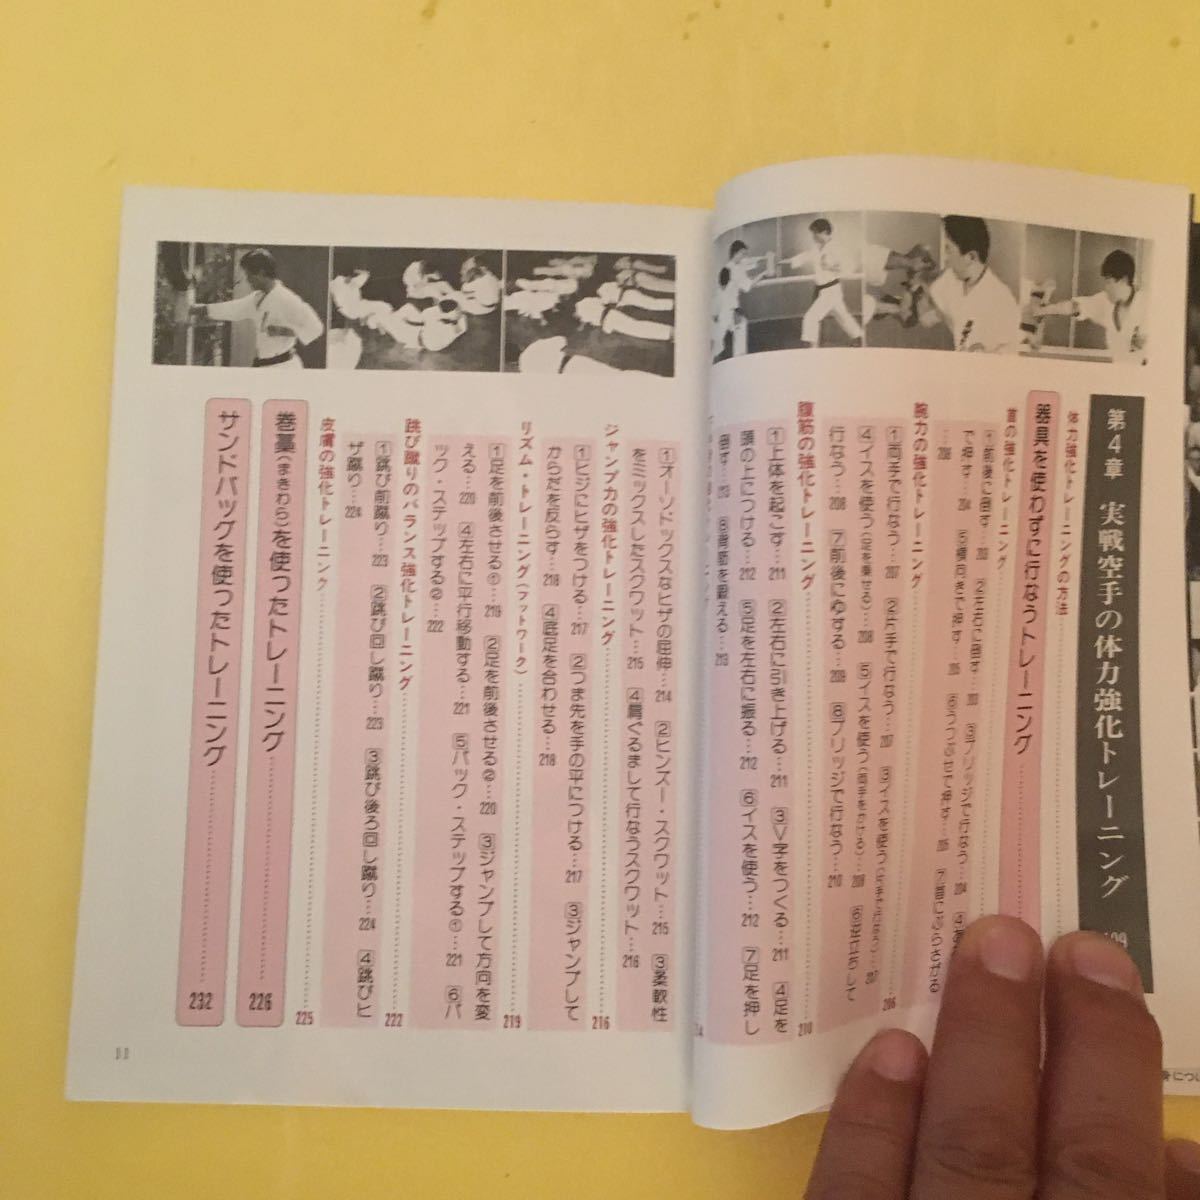 第4章 実戦空手の体力強化トレーニング
体力強化トレーニングの方法
器具を使わずに行なうトレーニング
首の強化トレーニング
①前後に倒す…203 ②左右に倒す…203 ③ブリッジで行なう…204
で押す…204 ⑤横向きで押す…205 ⑥うつぶせで押す…205 ⑦首にぶらさがる
…206
腕力の強化トレーニング 206
①両手で行なう…207 ②片手で行なう…207 ③イスを使う
④イスを使う(足を乗せる)…208 ⑤イスを使う(両手をかける)…208 ⑥逆立ちして
行なう…208 ⑦前後にゆする…209 ⑧ブリッジで行なう…210
腹筋の強化トレーニング 210
①上体を起こす…211 ②左右に引き上げる…211 ③V字をつくる…211 ④足を
頭の上につける…212 ⑤足を左右に振る…212 ⑥イスを使う…212 ⑦足を押し
倒す…213 ⑧背筋を鍛える…213
①オーソドックスなヒザの屈伸…214 ②ヒンズー・スクワット…215 ③柔軟性
をミックスしたスクワット…215 ④肩ぐるまして行なうスクワット…216
ジャンプ力の強化トレーニング 216
①ヒジにヒザをつける…217 ②つま先を手の平につける…217 ③ジャンプして
からだを反らす…218 ④底足を合わせる…218
リズム・トレーニング(フットワーク) 219
①足を前後させる①…219 ②足を前後させる②…220 ③ジャンプして方向を変
える…220 ④左右に平行移動する…221 ⑤バック・ステップする①…221 ⑥バ
ック・ステップする②…222
跳び蹴りのバランス強化トレーニング 222
①跳び前蹴り…223 ②跳び回し蹴り…223 ③跳び後ろ回し蹴り…224 ④跳びヒ
ザ蹴り…224
皮膚の強化トレーニング 225
巻藁(まきわら)を使ったトレーニング 226
サンドバッグを使ったトレーニング 232
11